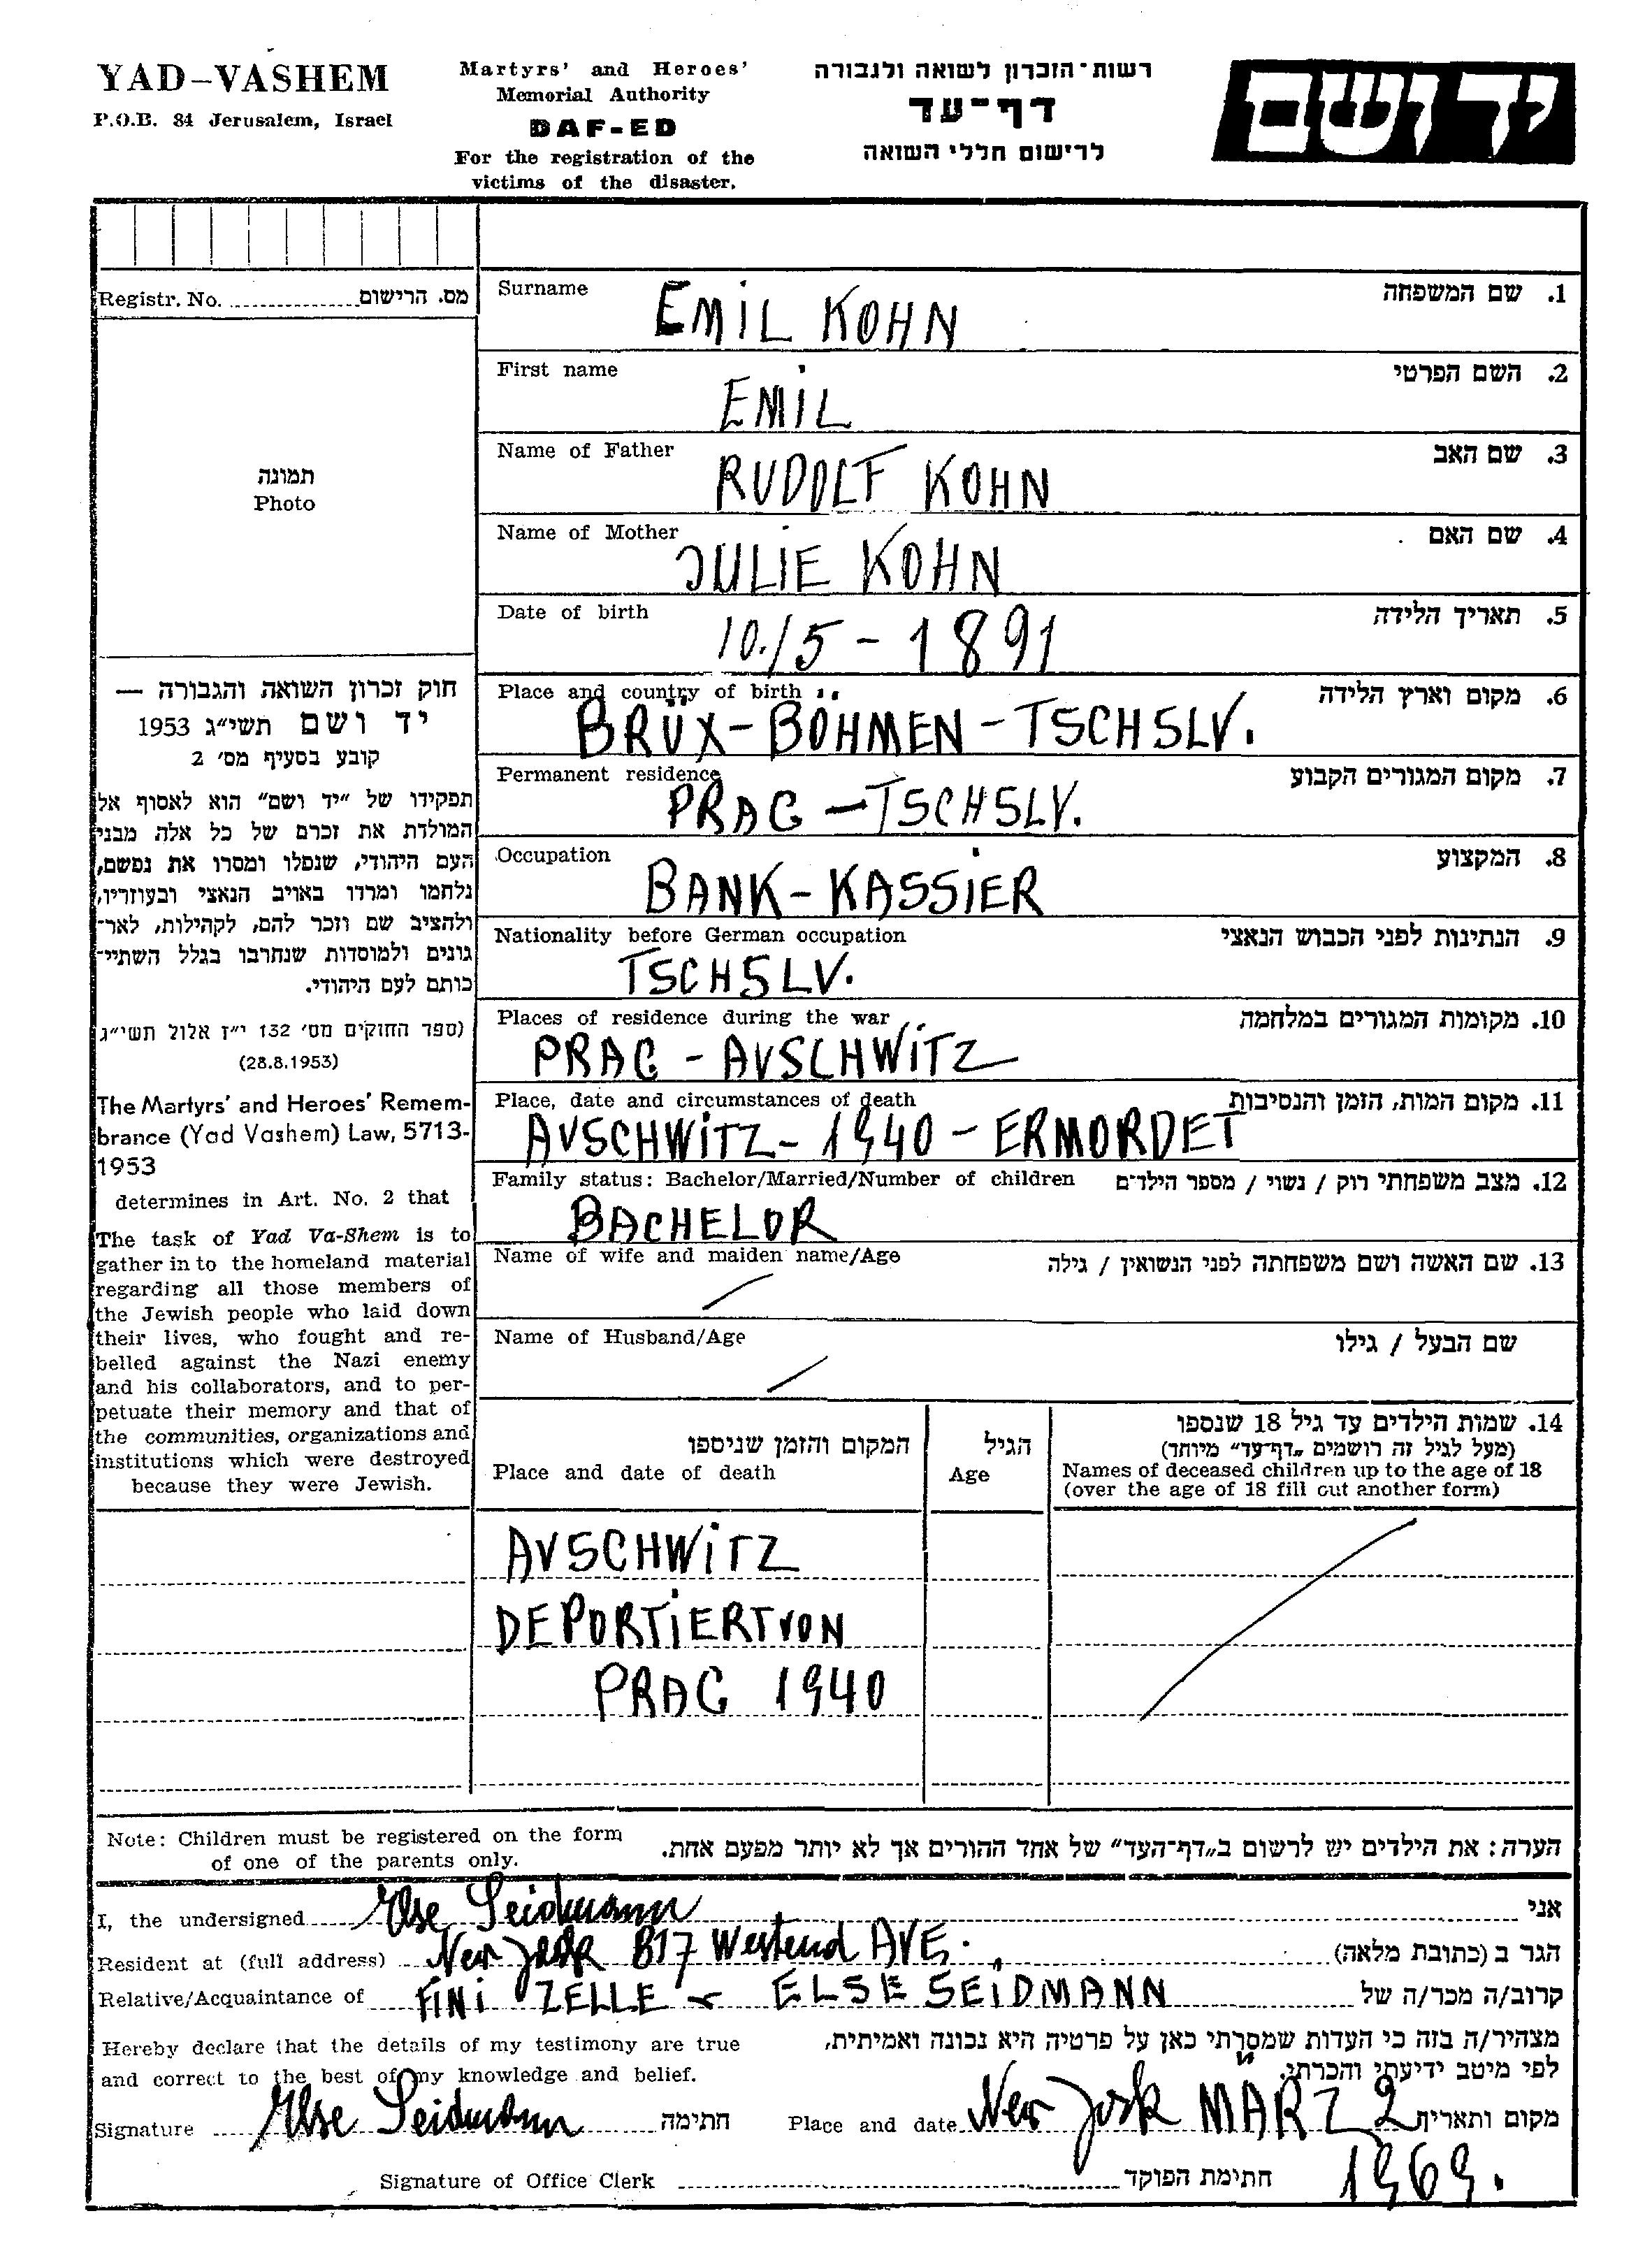 YAD-VASHEM
P.O.B. 84 Jerusalem, Israel
Martyrs' and Heroes'
Memorial Authority
DAF-ED
For the registration of the
victims of the disaster.
רשות-הזכרון לשואה ולגבורה
דף-עד
לרישום חללי השואה
יד ושם
Registr. No. מס. הרישום
תמונה
Photo
חוק זכרון השואה והגבורה —
יד ושם תשי״ג 1953
קובע בסעיף מס׳ 2
תפקידו של ״יד ושם״ הוא לאסוף אל
המולדת את זכרם של כל אלה מבני
העם היהודי, שנפלו ומסרו את נפשם,
נלחמו ומרדו באויב הנאצי ובעוזריו,
ולהציב שם וזכר להם, לקהילות, לאר-
גונים ולמוסדות שנחרבו בגלל השתיי-
כותם לעם היהודי.
(ספר החוקים מס׳ 132 י״ז אלול תשי״ג
(28.8.1953)
The Martyrs' and Heroes' Remem-
brance (Yad Vashem) Law, 5713-
1953
determines in Art. No. 2 that
The task of Yad Va-Shem is to
gather in to the homeland material
regarding all those members of
the Jewish people who laid down
their lives, who fought and re-
belled against the Nazi enemy
and his collaborators, and to per-
petuate their memory and that of
the communities, organizations and
institutions which were destroyed
because they were Jewish.
Surname 1. שם המשפחה
EMIL KOHN
First name 2. השם הפרטי
EMIL
Name of Father 3. שם האב
RUDOLF KOHN
Name of Mother 4. שם האם
JULIE KOHN
Date of birth 5. תאריך הלידה
10./5 - 1891
Place and country of birth 6. מקום וארץ הלידה
BRÜX - BÖHMEN - TSCHSLV.
Permanent residence 7. מקום המגורים הקבוע
PRAG - TSCHSLV.
Occupation 8. המקצוע
BANK - KASSIER
Nationality before German occupation 9. הנתינות לפני הכבוש הנאצי
TSCHSLV.
Places of residence during the war 10. מקומות המגורים במלחמה
PRAG - AUSCHWITZ
Place, date and circumstances of death 11. מקום המות, הזמן והנסיבות
AUSCHWITZ - 1940 - ERMORDET
Family status: Bachelor/Married/Number of children 12. מצב משפחתי רוק / נשוי / מספר הילדים
BACHELOR
Name of wife and maiden name/Age 13. שם האשה ושם משפחתה לפני הנשואין / גילה
Name of Husband/Age שם הבעל / גילו
המקום והזמן שניספו
Place and date of death
הגיל
Age
14. שמות הילדים עד גיל 18 שנספו
(מעל לגיל זה רושמים „דף-עד״ מיוחד)
Names of deceased children up to the age of 18
(over the age of 18 fill out another form)
AUSCHWITZ
DEPORTIERT VON
PRAG 1940
Note: Children must be registered on the form
of one of the parents only.
הערה: את הילדים יש לרשום ב„דף-העד״ של אחד ההורים אך לא יותר מפעם אחת.
I, the undersigned Else Seidmann אני
Resident at (full address) New York 817 Westend AVE. הגר ב (כתובת מלאה)
Relative/Acquaintance of FINI ZELLE - ELSE SEIDMANN קרוב/ה מכר/ה של
Hereby declare that the details of my testimony are true
and correct to the best of my knowledge and belief.
מצהיר/ה בזה כי העדות שמסרתי כאן על פרטיה היא נכונה ואמיתית,
לפי מיטב ידיעתי והכרתי.
Signature Else Seidmann חתימה Place and date New York MÄRZ 2 מקום ותאריך
1969.
Signature of Office Clerk חתימת הפוקד